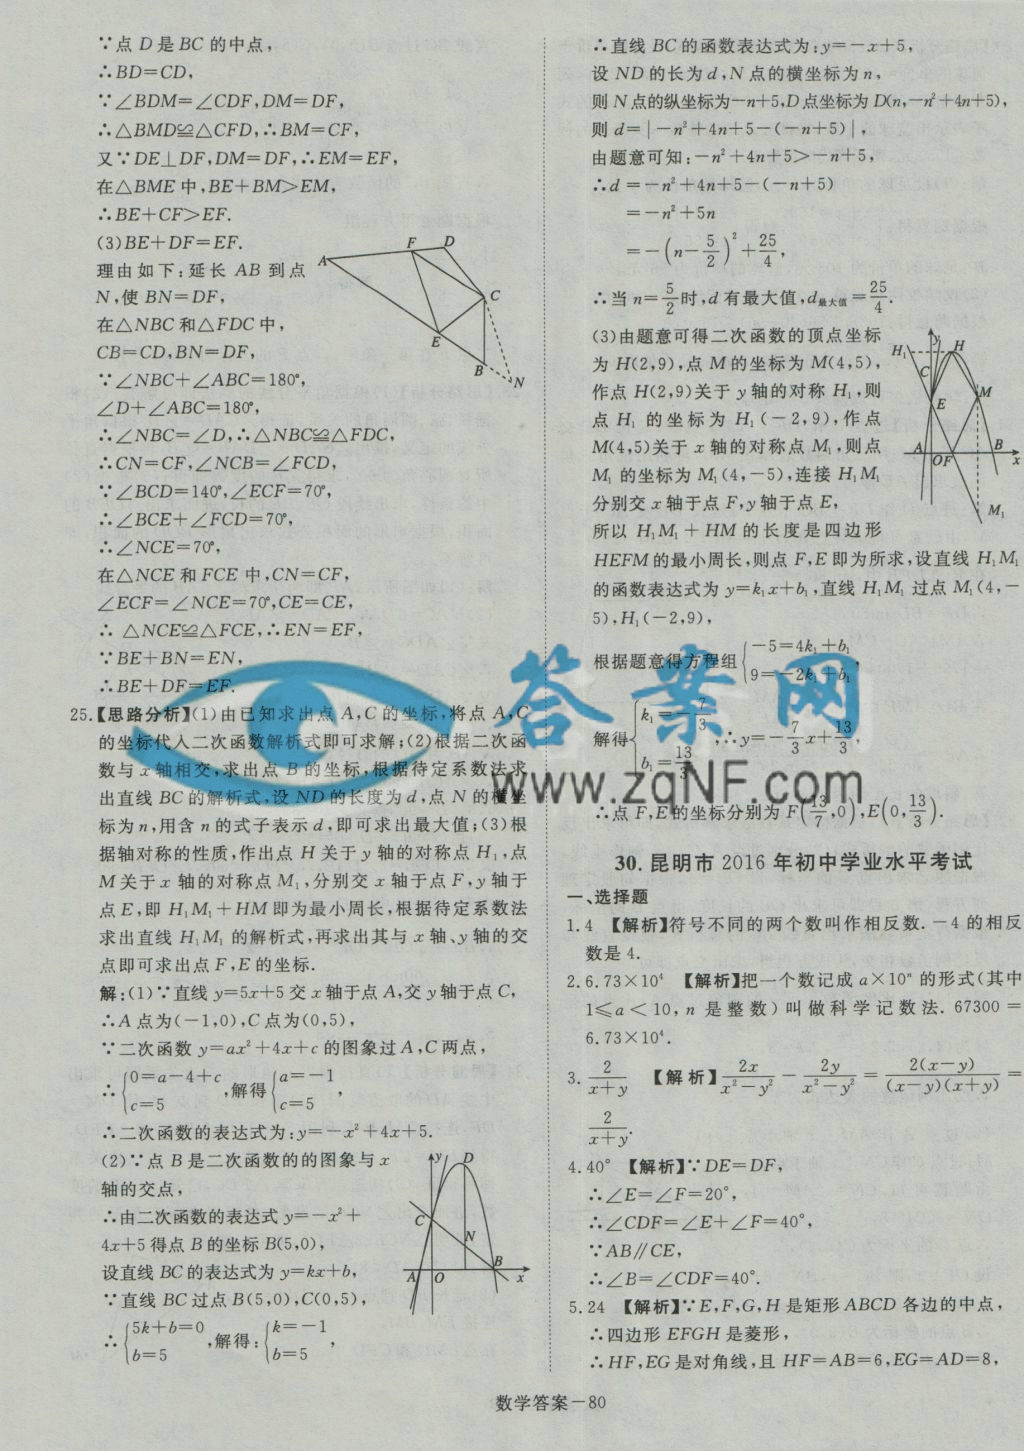 ∵点 D 是 BC 的中点,
∴BD=CD,
∵∠BDM=∠CDF,DM=DF,
∴△BMD≌△CFD,∴BM=CF,
又∵DE⊥DF,DM=DF,∴EM=EF,
在△BME 中,BE+BM>EM,
∴BE+CF>EF.
(3)BE+DF=EF.
理由如下:延长 AB 到点
N,使 BN=DF,
在△NBC 和△FDC 中,
CB=CD,BN=DF,
∵∠NBC+∠ABC=180°,
∠D+∠ABC=180°,
∴∠NBC=∠D,∴△NBC≌△FDC,
∴CN=CF,∠NCB=∠FCD,
∵∠BCD=140°,∠ECF=70°,
∴∠BCE+∠FCD=70°,
∴∠NCE=70°,
在△NCE 和 FCE 中,CN=CF,
∠ECF=∠NCE=70°,CE=CE,
∴△NCE≌△FCE,∴EN=EF,
∵BE+BN=EN,
∴BE+DF=EF.
A F D C E B N
25.【思路分析】(1)由已知求出点 A,C 的坐标,将点 A,C
的坐标代入二次函数解析式即可求解;(2)根据二次函
数与 x 轴相交,求出点 B 的坐标,根据待定系数法求
出直线 BC 的解析式,设 ND 的长度为 d,点 N 的横坐
标为 n,用含 n 的式子表示 d,即可求出最大值;(3)根
据轴对称的性质,作出点 H 关于 y 轴的对称点 H₁,点
M 关于 x 轴的对称点 M₁,分别交 x 轴于点 F,y 轴于
点 E,即 H₁M₁+HM 即为最小周长,根据待定系数法
求出直线 H₁M₁ 的解析式,再求出其与 x 轴、y 轴的交
点即可求出点 F,E 的坐标.
解:(1)∵直线 y=5x+5 交 x 轴于点 A,交 y 轴于点 C,
∴A 点为(-1,0),C 点为(0,5),
∵二次函数 y=ax²+4x+c 的图象过 A,C 两点,
∴{0=a-4+c, c=5 ,解得{a=-1, c=5 ,
∴二次函数的表达式为:y=-x²+4x+5.
(2)∵点 B 是二次函数的的图象与 x
轴的交点,
∴由二次函数的表达式 y=-x²+
4x+5 得点 B 的坐标 B(5,0),
设直线 BC 的表达式为 y=kx+b,
∵直线 BC 过点 B(5,0),C(0,5),
∴{5k+b=0, b=5 ,解得:{k=-1, b=5 ,
y D C N B A O x
∴直线 BC 的函数表达式为:y=-x+5,
设 ND 的长为 d,N 点的横坐标为 n,
则 N 点的纵坐标为-n+5,D 点坐标为 D(n,-n²+4n+5),
则 d=|-n²+4n+5-(-n+5)|,
由题意可知:-n²+4n+5>-n+5,
∴d=-n²+4n+5-(-n+5)
=-n²+5n
=-(n-5/2)²+25/4,
∴当 n=5/2时,d 有最大值,d最大值=25/4.
(3)由题意可得二次函数的顶点坐标
为 H(2,9),点 M 的坐标为 M(4,5),
作点 H(2,9)关于 y 轴的对称 H₁,则
点 H₁ 的坐标为 H₁(-2,9),作点
M(4,5)关于 x 轴的对称点 M₁,则点
M₁ 的坐标为 M₁(4,-5),连接 H₁M₁
分别交 x 轴于点 F,y 轴于点 E,
所以 H₁M₁+HM 的长度是四边形
HEFM 的最小周长,则点 F,E 即为所求,设直线 H₁M₁
的函数表达式为 y=k₁x+b₁,直线 H₁M₁ 过点 M₁(4,-
5),H₁(-2,9),
y H₁ H C E M A O F B x M₁
根据题意得方程组{-5=4k₁+b₁, 9=-2k₁+b₁ ,
解得{k₁=-7/3, b₁=13/3 ,∴y=-7/3x+13/3,
∴点 F,E 的坐标分别为 F(13/7,0),E(0,13/3).
30.昆明市 2016 年初中学业水平考试
一、选择题
1.4 【解析】符号不同的两个数叫作相反数.-4 的相反
数是 4.
2.6.73×10⁴ 【解析】把一个数记成 a×10ⁿ 的形式(其中
1≤a<10,n 是整数)叫做科学记数法.67300=
6.73×10⁴.
3.2/(x+y) 【解析】2x/(x²-y²)-2y/(x²-y²)=2(x-y)/((x-y)(x+y))=
2/(x+y).
4.40° 【解析】∵DE=DF,
∴∠E=∠F=20°,
∴∠CDF=∠E+∠F=40°,
∵AB∥CE,
∴∠B=∠CDF=40°.
5.24 【解析】∵E,F,G,H 是矩形 ABCD 各边的中点,
∴四边形 EFGH 是菱形,
∴HF,EG 是对角线,且 HF=AB=6,EG=AD=8,
答案网
www.zqNF.com
数学答案—80